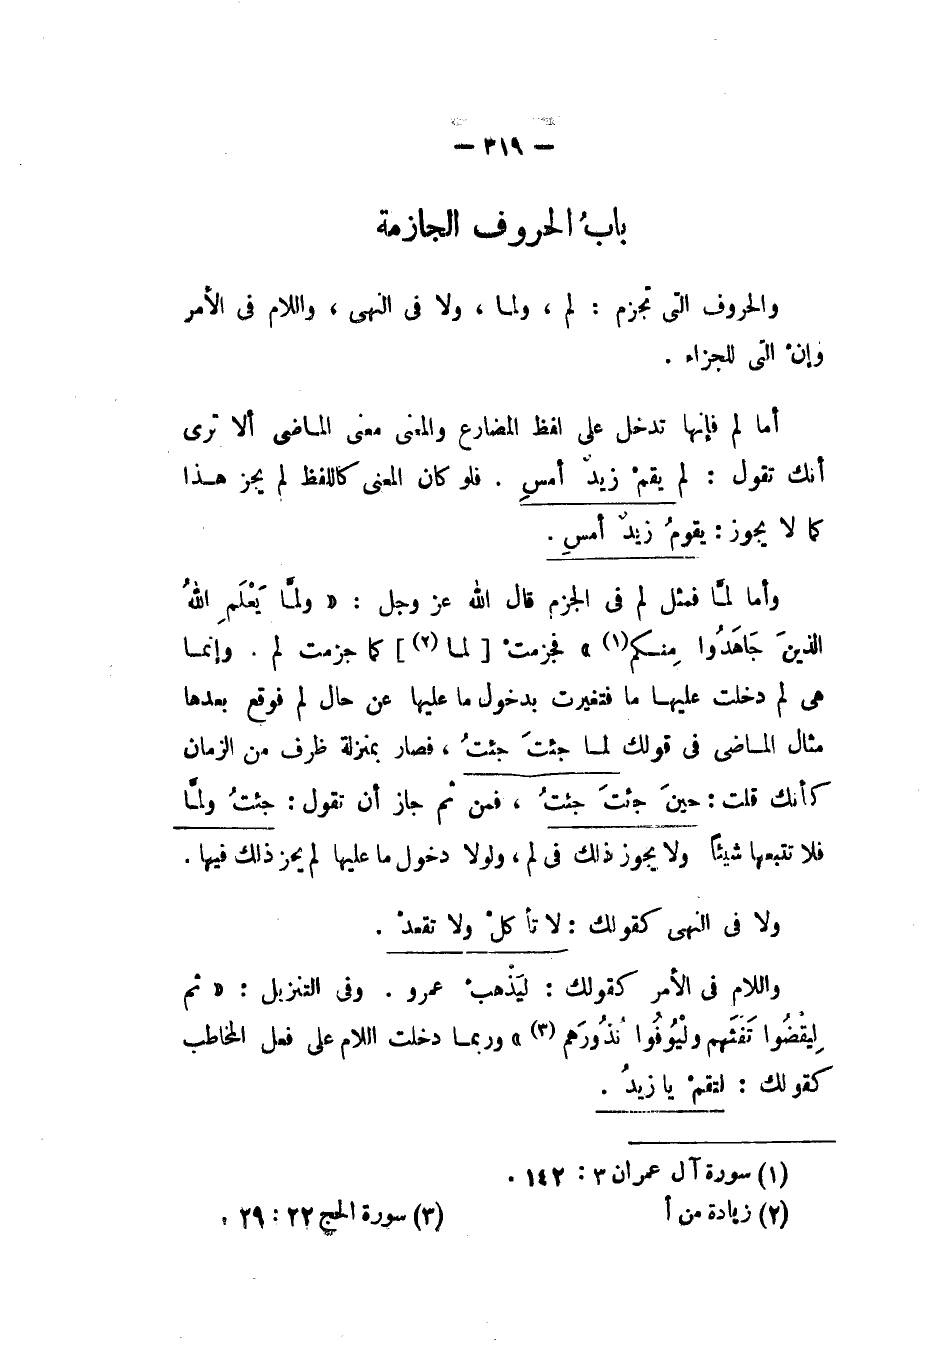 — ٣١٩ —
بابُ الحروف الجازمة
والحروف التى تجزم : لم ، ولمـا ، ولا فى النهى ، واللام فى الأمر
وإنْ التى للجزاء .
أما لم فإنها تدخل على لفظ المضارع والمعنى معنى المـاضى ألا ترى
أنك تقول : لم يقمْ زيدٌ أمسِ . فلو كان المعنى كاللفظ لم يجز هـذا
كما لا يجوز : يقومُ زيدٌ أمسِ .
وأما لمَّا فمثل لم فى الجزم قال الله عز وجل : « ولمَّـا يَعْلَمِ اللهُ
الذينَ جَاهَدُوا مِنـكم(١) » فجزمتْ [ لمـا (٢) ] كما جزمت لم . وإنمـا
هى لم دخلت عليهـا ما فتغيرت بدخول ما عليها عن حال لم فوقع بعدها
مثال المـاضى فى قولك لمـا جئتَ جئتُ ، فصار بمنزلة ظرف من الزمان
كأنك قلت : حينَ جئتَ جئتُ ، فمن ثم جاز أن تقول : جئتُ ولمَّـا
فلا تتبعها شيئاً ولا يجوز ذلك فى لم ، ولولا دخول ما عليها لم يجز ذلك فيها .
ولا فى النهى كقولك : لا تأكلْ ولا تقعدْ .
واللام فى الأمر كقولك : ليَذْهبْ عمرو . وفى التنزيل : « ثم
لِيقْضُوا تَفَثَهم ولْيُوفُوا نُذُورَهم (٣) » وربمـا دخلت اللام على فعل المخاطب
كقولك : لتقمْ يا زيدُ .
(١) سورة آل عمران ٣ : ١٤٢ .
(٢) زيادة من أ (٣) سورة الحج ٢٢ : ٢٩ .